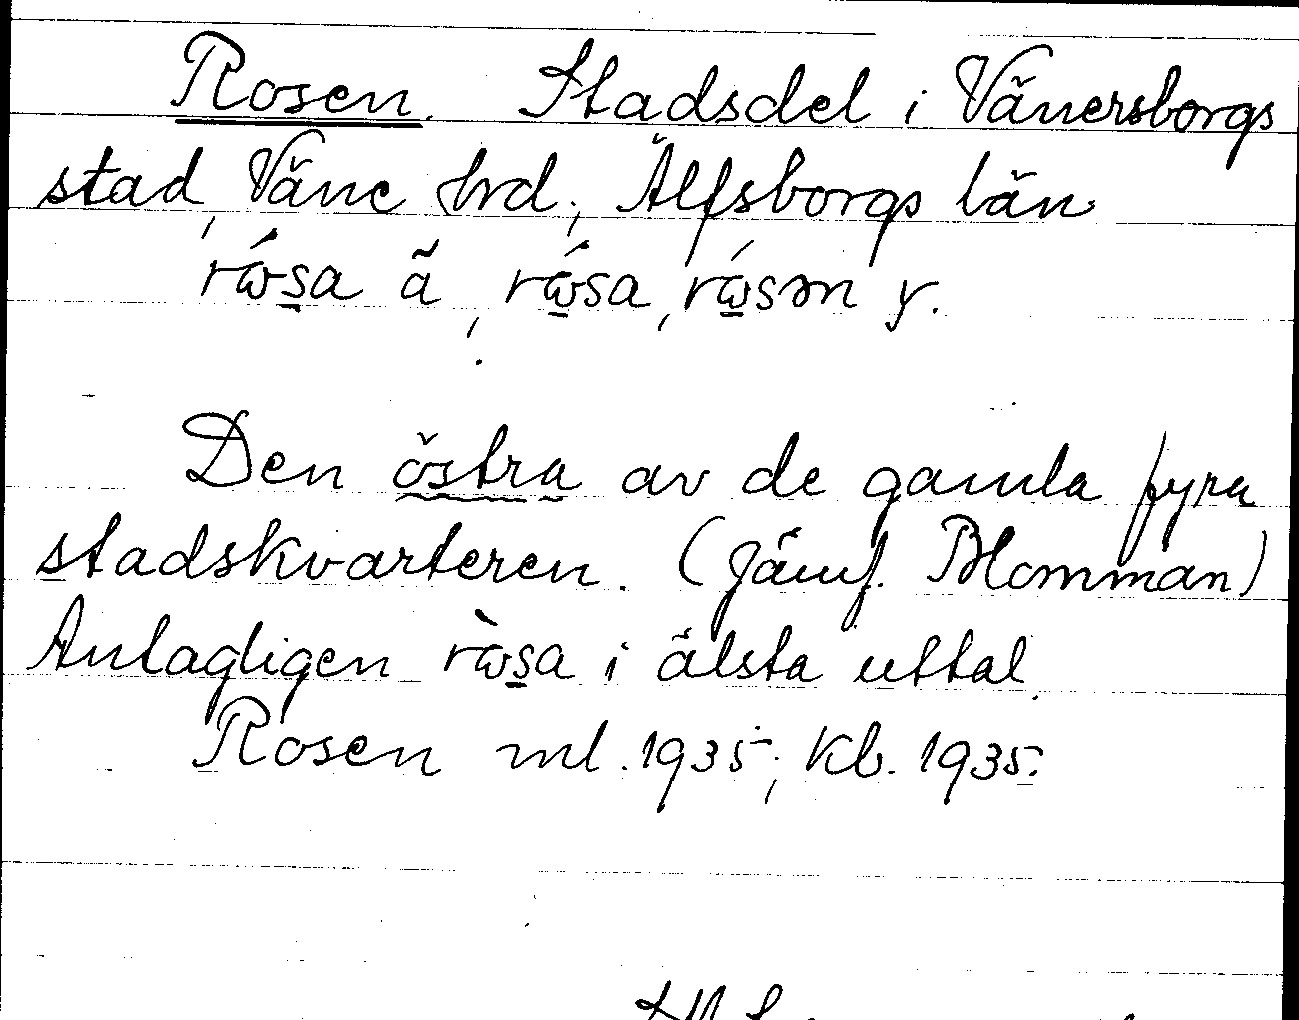 Rosen. Stadsdel i Vänersborgs
stad, Väne hrd, Älfsborgs län
rωsa ä, rωsa, rωsən y.
Den östra av de gamla fyra
stadskvarteren. (Jämf. Blomman)
Antagligen rωsa i älsta uttal.
Rosen ml. 1935; Kb. 1935.